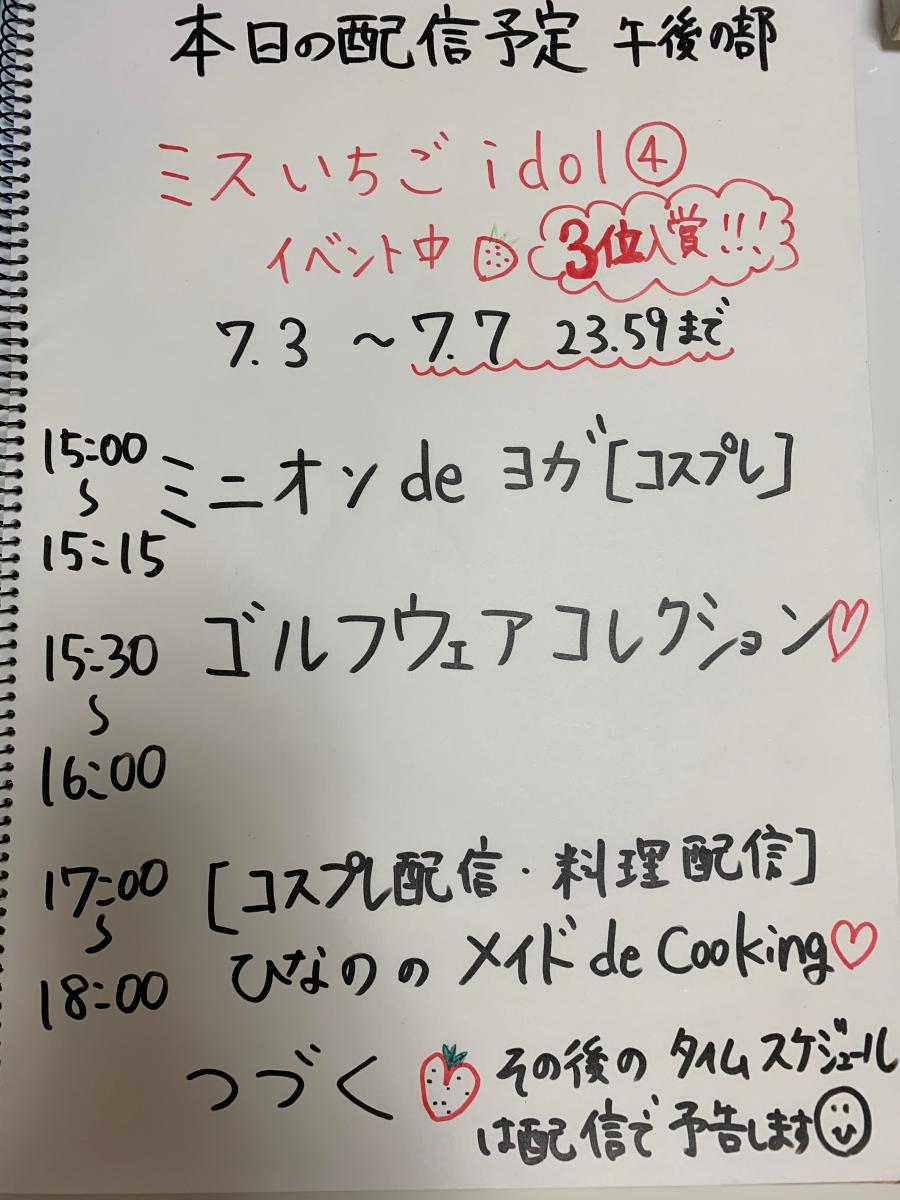 本日の配信予定 午後の部
ミスいちご idol④
イベント中 3位入賞!!!
7.3 〜 7.7 23.59まで
15:00
〜
15:15
ミニオン de ヨガ [コスプレ]
15:30
〜
16:00
ゴルフウェアコレクション♡
17:00
〜
18:00
[コスプレ配信・料理配信]
ひなののメイド de Cooking♡
つづく
その後のタイムスケジュール
は配信で予告します